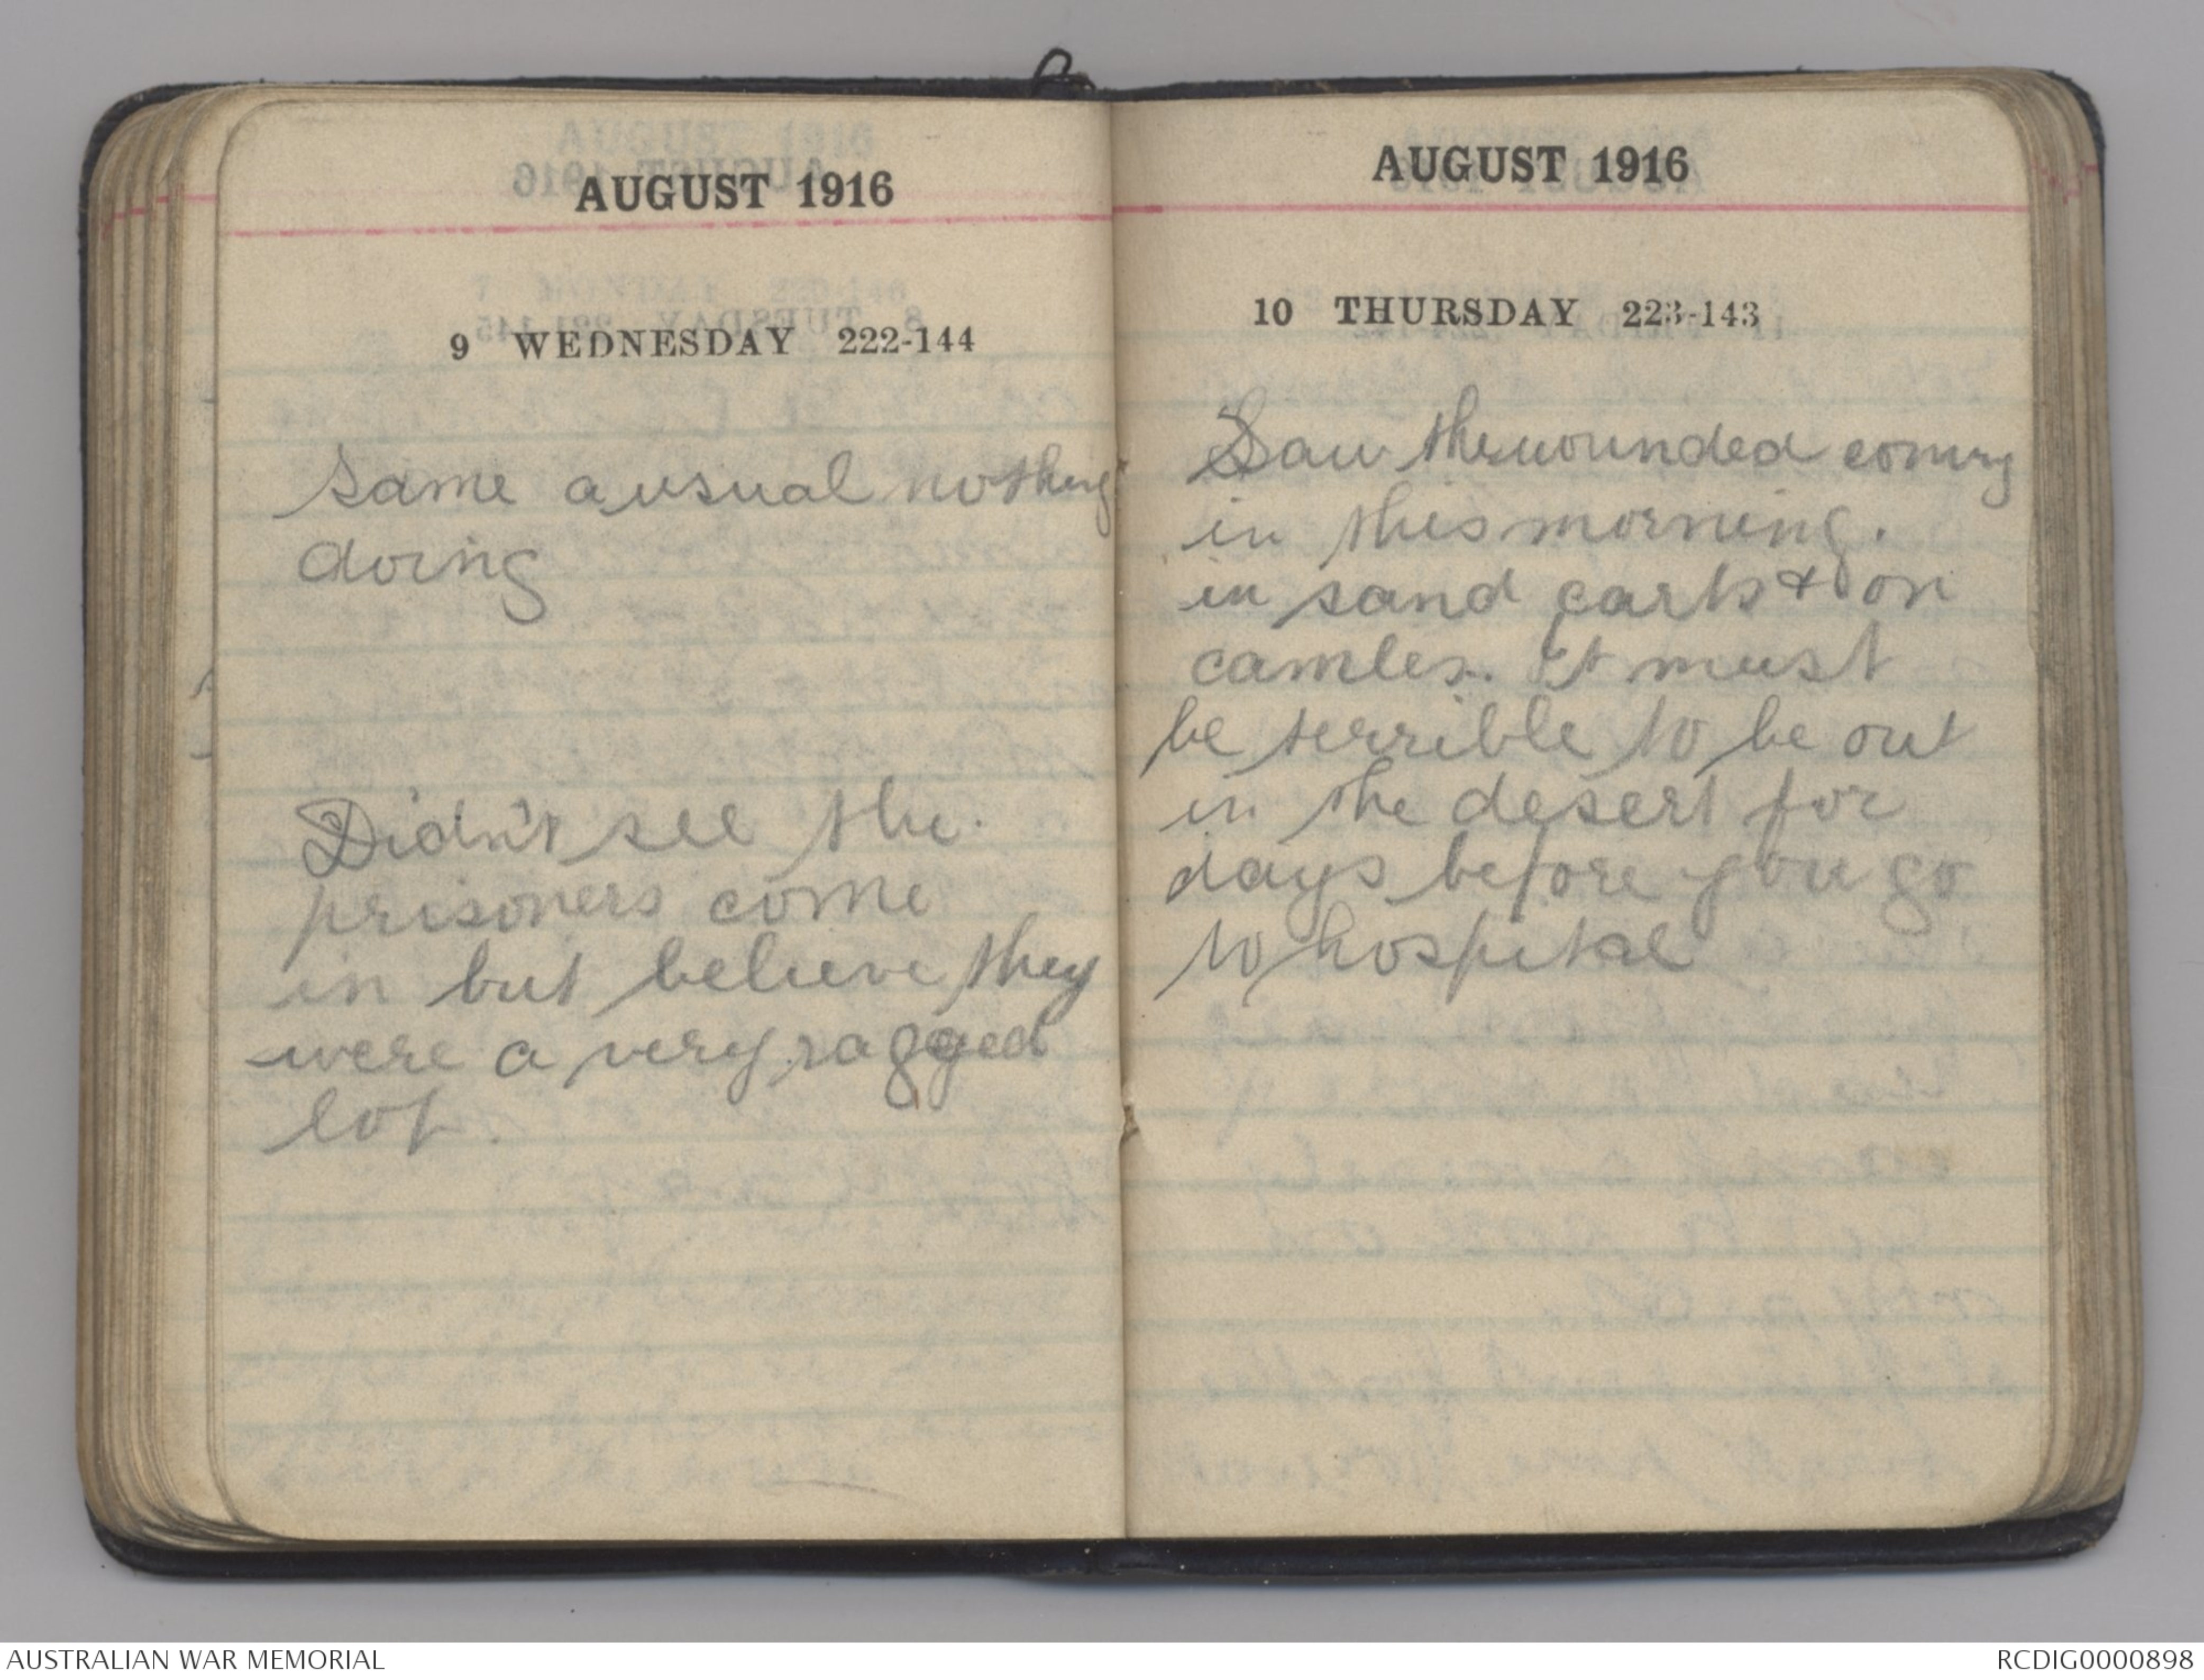 AUGUST 1916
9 WEDNESDAY 222-144
Same a usual nothing
doing
Didn't see the
prisoners come
in but believe they
were a very ragged
lot.
AUGUST 1916
10 THURSDAY 223-143
Saw the wounded coming
in this morning.
in sand carts & on
camles. It must
be terrible to be out
in the desert for
days before you go
to hospital
AUSTRALIAN WAR MEMORIAL
RCDIG0000898